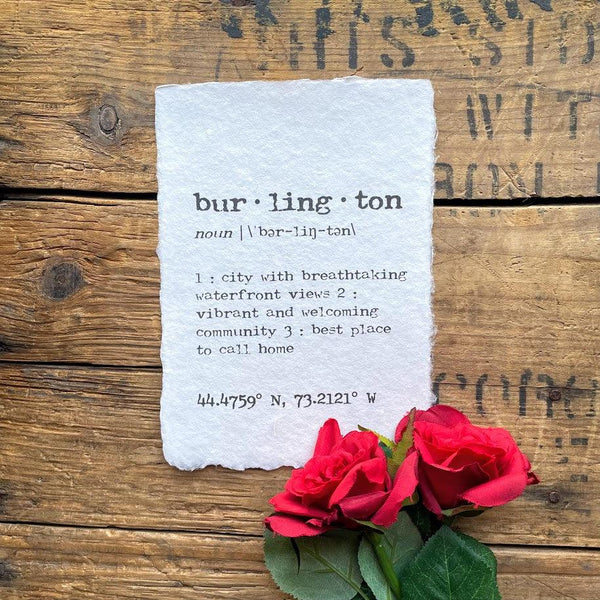 THIS SID
WITH
bur · ling · ton
noun | \ˈbər-liŋ-tən\
1 : city with breathtaking
waterfront views 2 :
vibrant and welcoming
community 3 : best place
to call home
44.4759° N, 73.2121° W